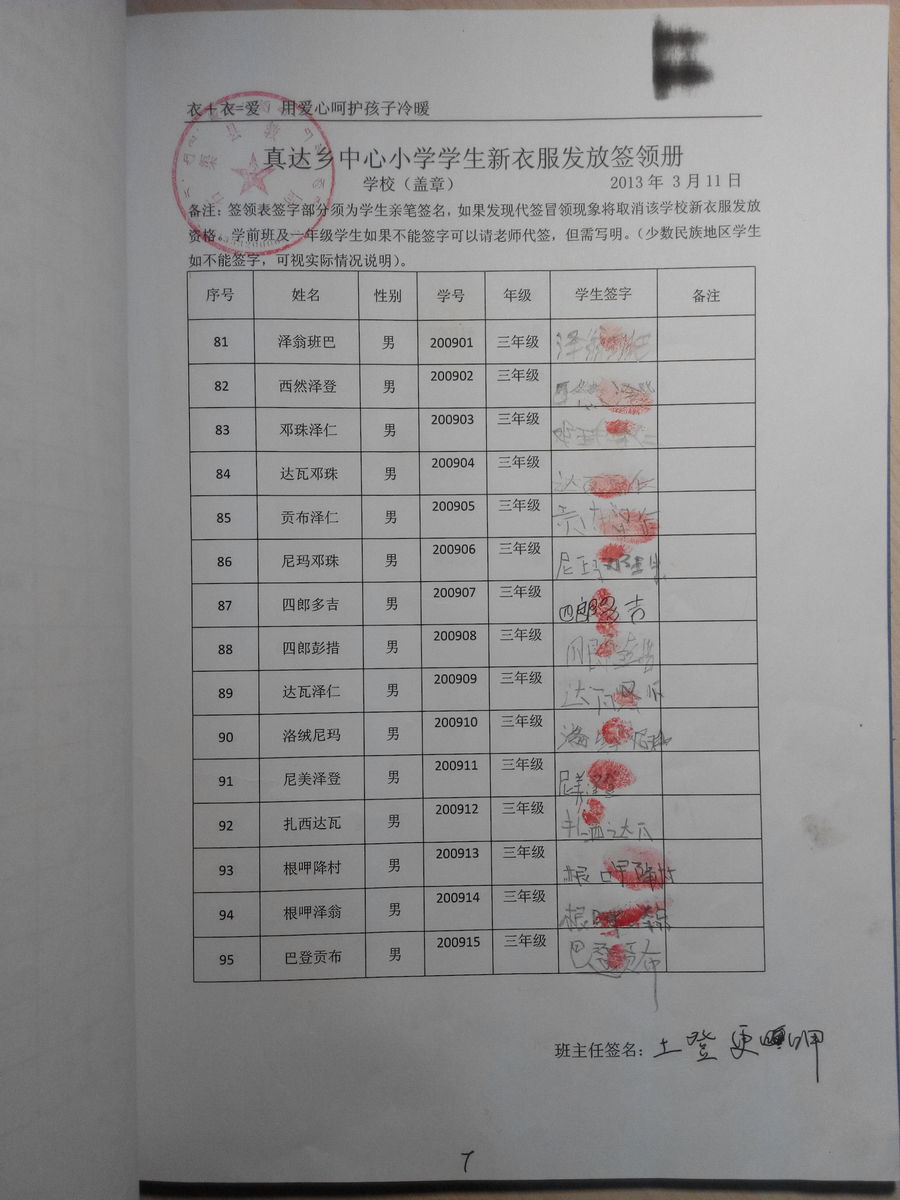 衣＋衣=爱　用爱心呵护孩子冷暖
真达乡中心小学学生新衣服发放签领册
学校（盖章） 2013 年 3 月 11 日
备注：签领表签字部分须为学生亲笔签名，如果发现代签冒领现象将取消该学校新衣服发放
资格。学前班及一年级学生如果不能签字可以请老师代签，但需写明。（少数民族地区学生
如不能签字，可视实际情况说明）。
序号 姓名 性别 学号 年级 学生签字 备注
81 泽翁班巴 男 200901 三年级
82 西然泽登 男 200902 三年级
83 邓珠泽仁 男 200903 三年级
84 达瓦邓珠 男 200904 三年级
85 贡布泽仁 男 200905 三年级
86 尼玛邓珠 男 200906 三年级 尼玛
87 四郎多吉 男 200907 三年级 四郎多吉
88 四郎彭措 男 200908 三年级
89 达瓦泽仁 男 200909 三年级
90 洛绒尼玛 男 200910 三年级
91 尼美泽登 男 200911 三年级 尼美泽登
92 扎西达瓦 男 200912 三年级 扎西达瓦
93 根呷降村 男 200913 三年级 根呷降村
94 根呷泽翁 男 200914 三年级
95 巴登贡布 男 200915 三年级 巴登贡布
班主任签名：土登更呷
7